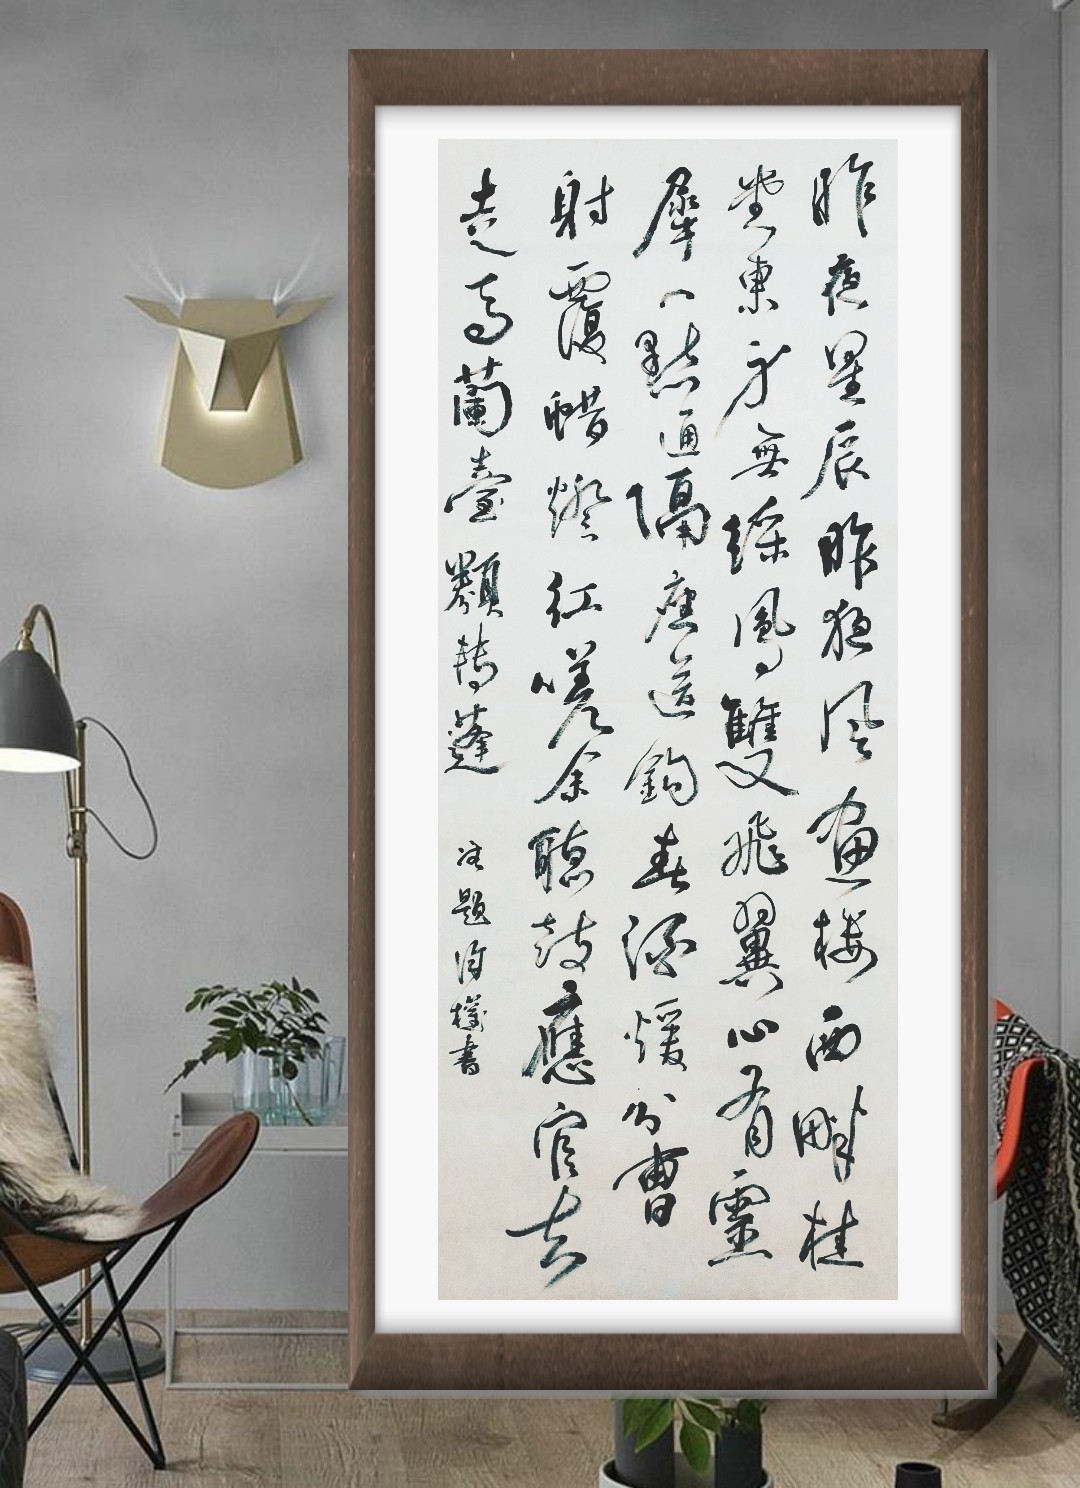 昨夜星辰昨夜风畫楼西畔桂
堂東身無綵鳳雙飛翼心有靈
犀一點通隔座送鈎春酒煖分曹
射覆蜡燈紅嗟余聽鼓應官去
走馬蘭臺類轉蓬
題書